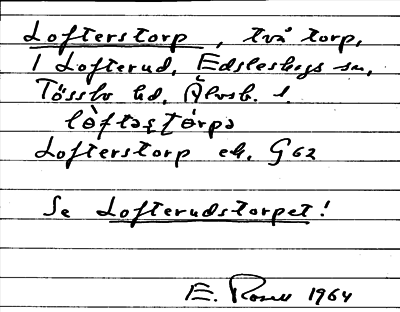 Lofterstorp, två torp,
1 Lofterud, Edsleskogs sn,
Tössbo hd, Älvsb. l.
lòftəʂt̩órpə
Lofterstorp ek. G62
Se Lofterudstorpet!
E. Rosell 1964